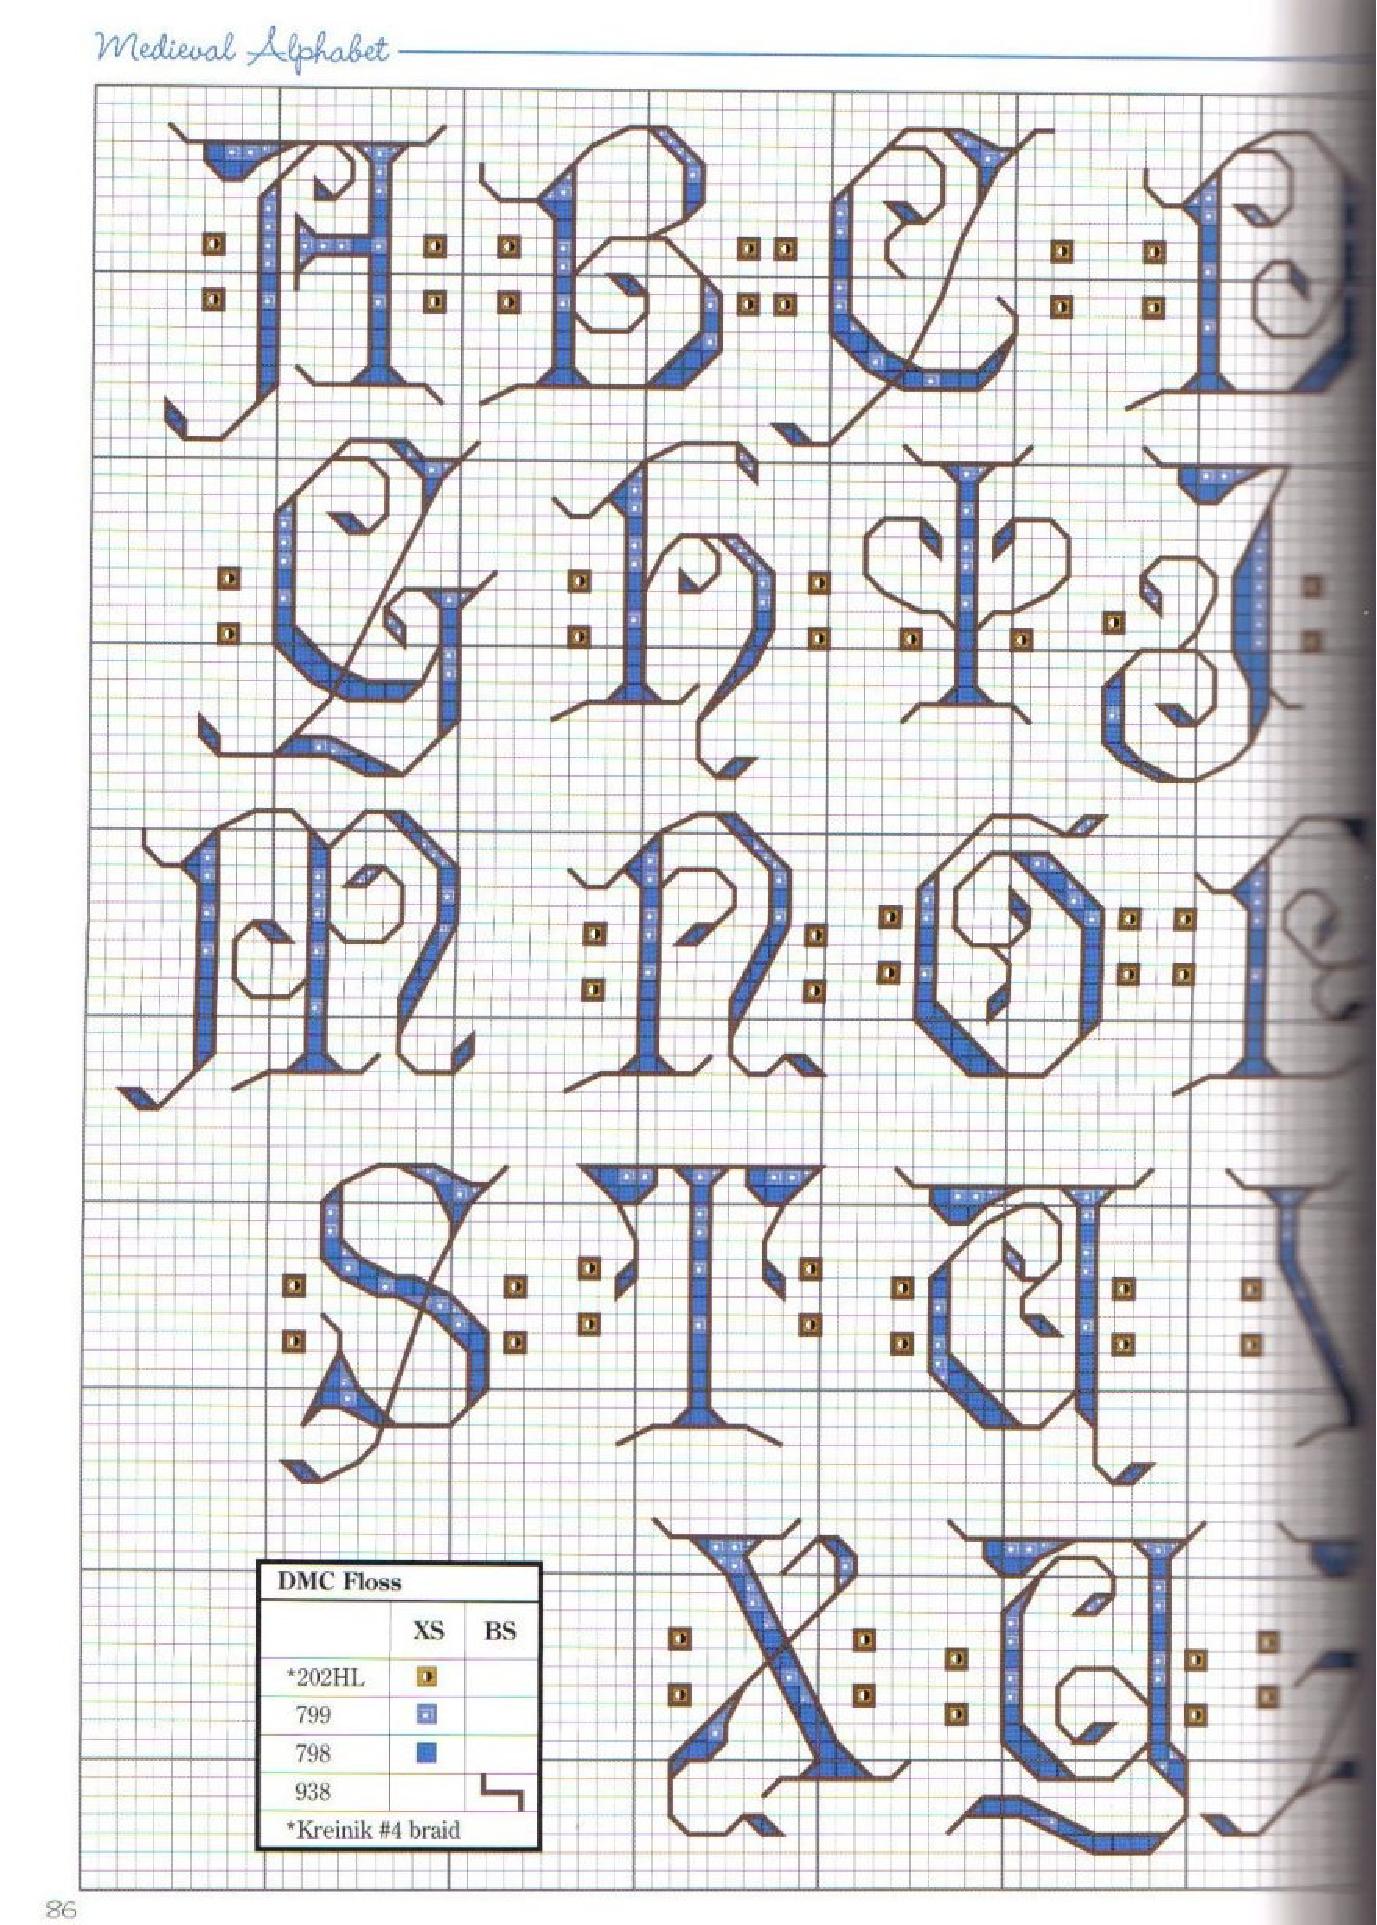 Medieval Alphabet
A B C D
G h I J
M N O P
S T U V
X Y
DMC Floss
XS BS
*202HL
799
798
938
*Kreinik #4 braid
86